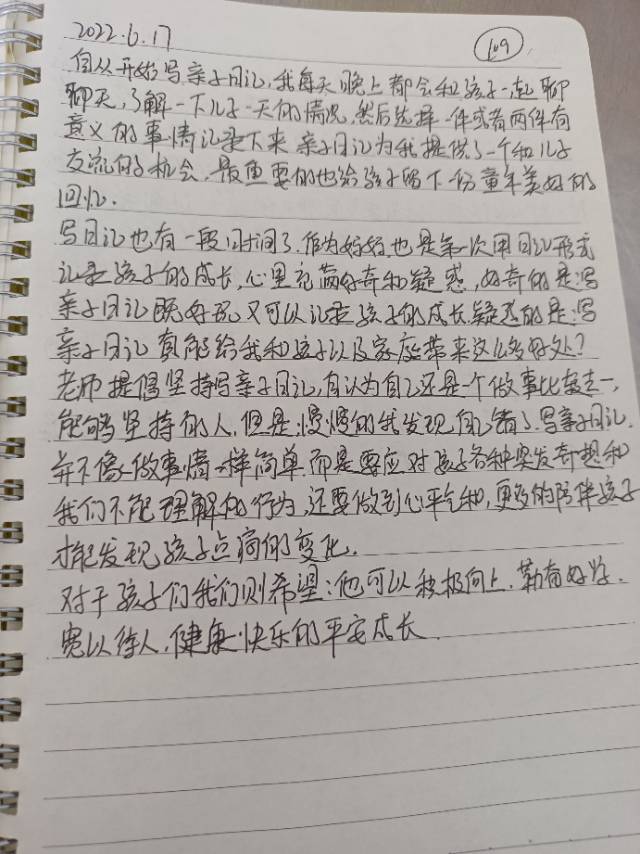 2022.6.17
109
自从开始写亲子日记,我每天晚上都会和孩子一起聊
聊天,了解一下儿子一天的情况,然后选择一件或者两件有
意义的事情记录下来 亲子日记为我提供了一个和儿子
交流的机会,最重要的也给孩子留下一份童年美好的
回忆.
写日记也有一段时间了,作为妈妈也是第一次用日记形式
记录孩子的成长,心里充满好奇和疑惑,好奇的是:写
亲子日记既好玩又可以记录孩子的成长,疑惑的是:写
亲子日记真能给我和孩子以及家庭带来这么多好处?
老师提倡坚持写亲子日记,自认为自己还是个做事比较专一,
能够坚持的人,但是,慢慢的我发现,自己错了,写亲子日记,
并不像做事情一样简单,而是要应对孩子各种突发奇想和
我们不能理解的行为,还要做到心平气和,更多的陪伴孩子
才能发现孩子点滴的变化.
对于孩子们我们则希望:他可以积极向上,勤奋好学.
宽以待人,健康快乐的平安成长.